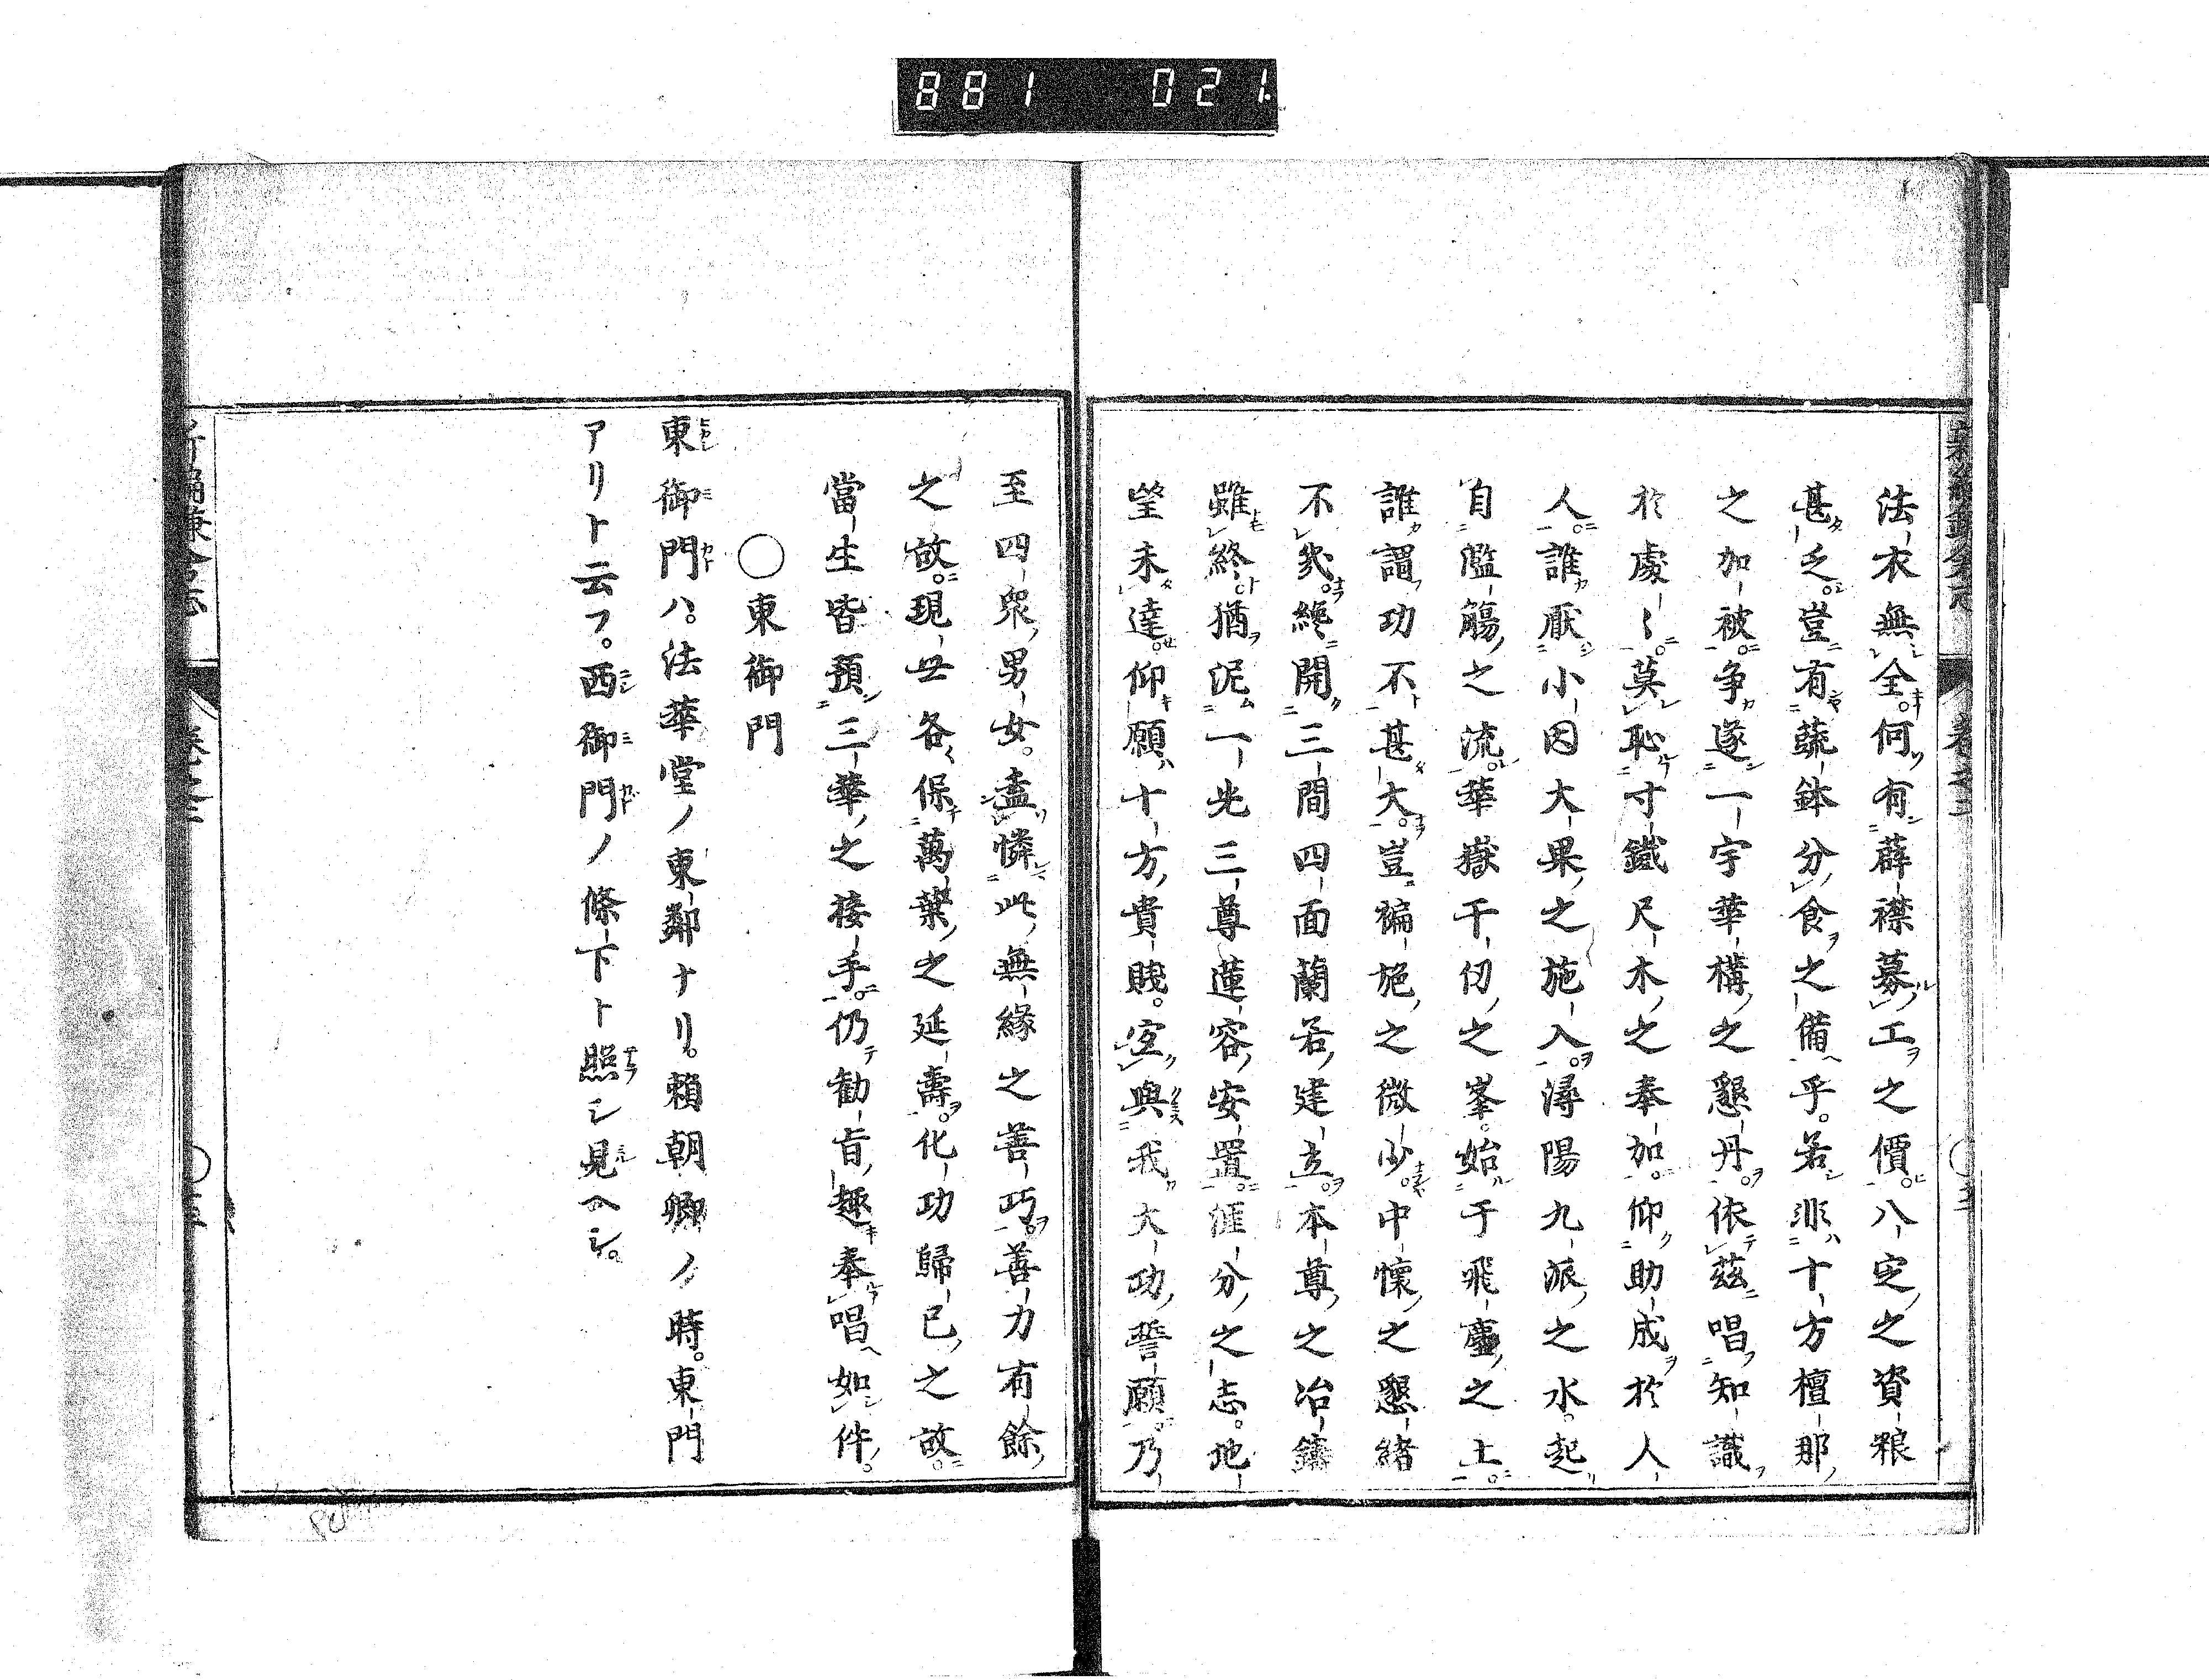 881 021
法衣無全。何有薜襟募工之價。八定之資粮
甚乏。豈有蔬鉢分食之備乎。若非十方檀那
之加被。争遂一宇華構之懇丹。依茲唱知識
於處々。莫恥寸鐵尺木之奉加。仰助成於人
人。誰厭小因大果之施入。潯陽九派之水。起
自濫觴之流。華嶽千仞之峯。始于飛塵之土。
誰謂功不甚大。豈褊施之微少。中懷之懇緒
不幾。纔開三間四面蘭若建立。本尊之冶鑄
雖終。猶泥一光三尊蓮容安置。涯分之志。地
望未達。仰願十方貴賤。定與我大功誓願。乃
至四衆男女。盡憐此無緣之善巧。善力有餘
之故。現世各保萬葉之延壽。化功歸已之故。
當生皆預三華之接手。仍勧旨趣奉唱如件。
○東御門
東御門ハ。法華堂ノ東鄰ナリ。賴朝卿ノ時。東門
アリト云フ。西御門ノ條下ト照シ見ヘシ。